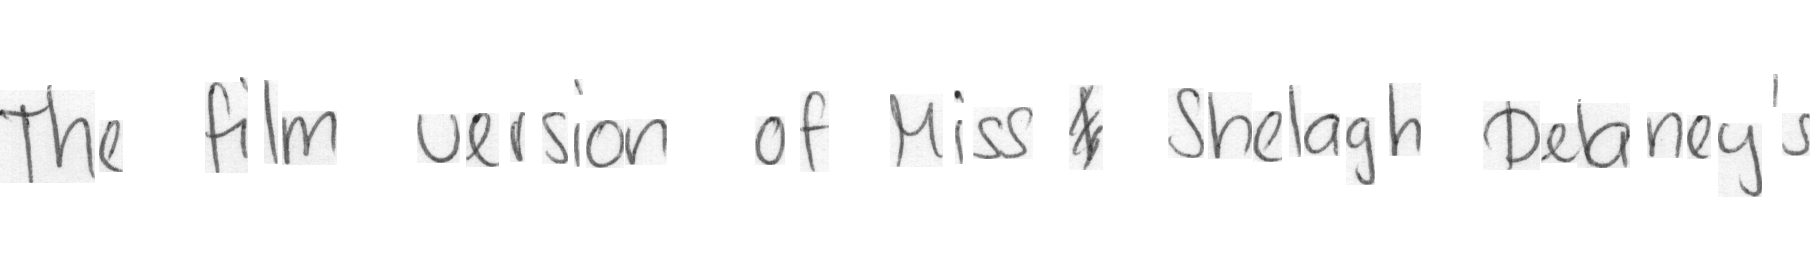 The film version of Miss Shelagh Delaney's